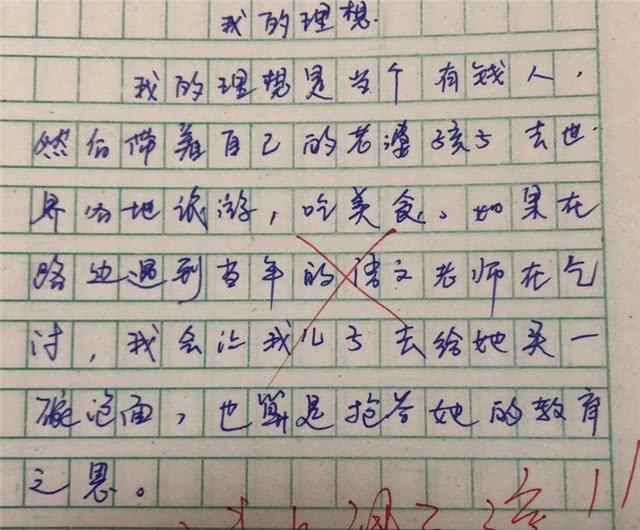 我的理想.
我的理想是当个有钱人,
然后带着自己的老婆孩子去世
界各地旅游,吃美食。如果在
路边遇到当年的语文老师在乞
讨,我会让我儿子去给她买一
碗泡面,也算是报答她的教育
之恩。